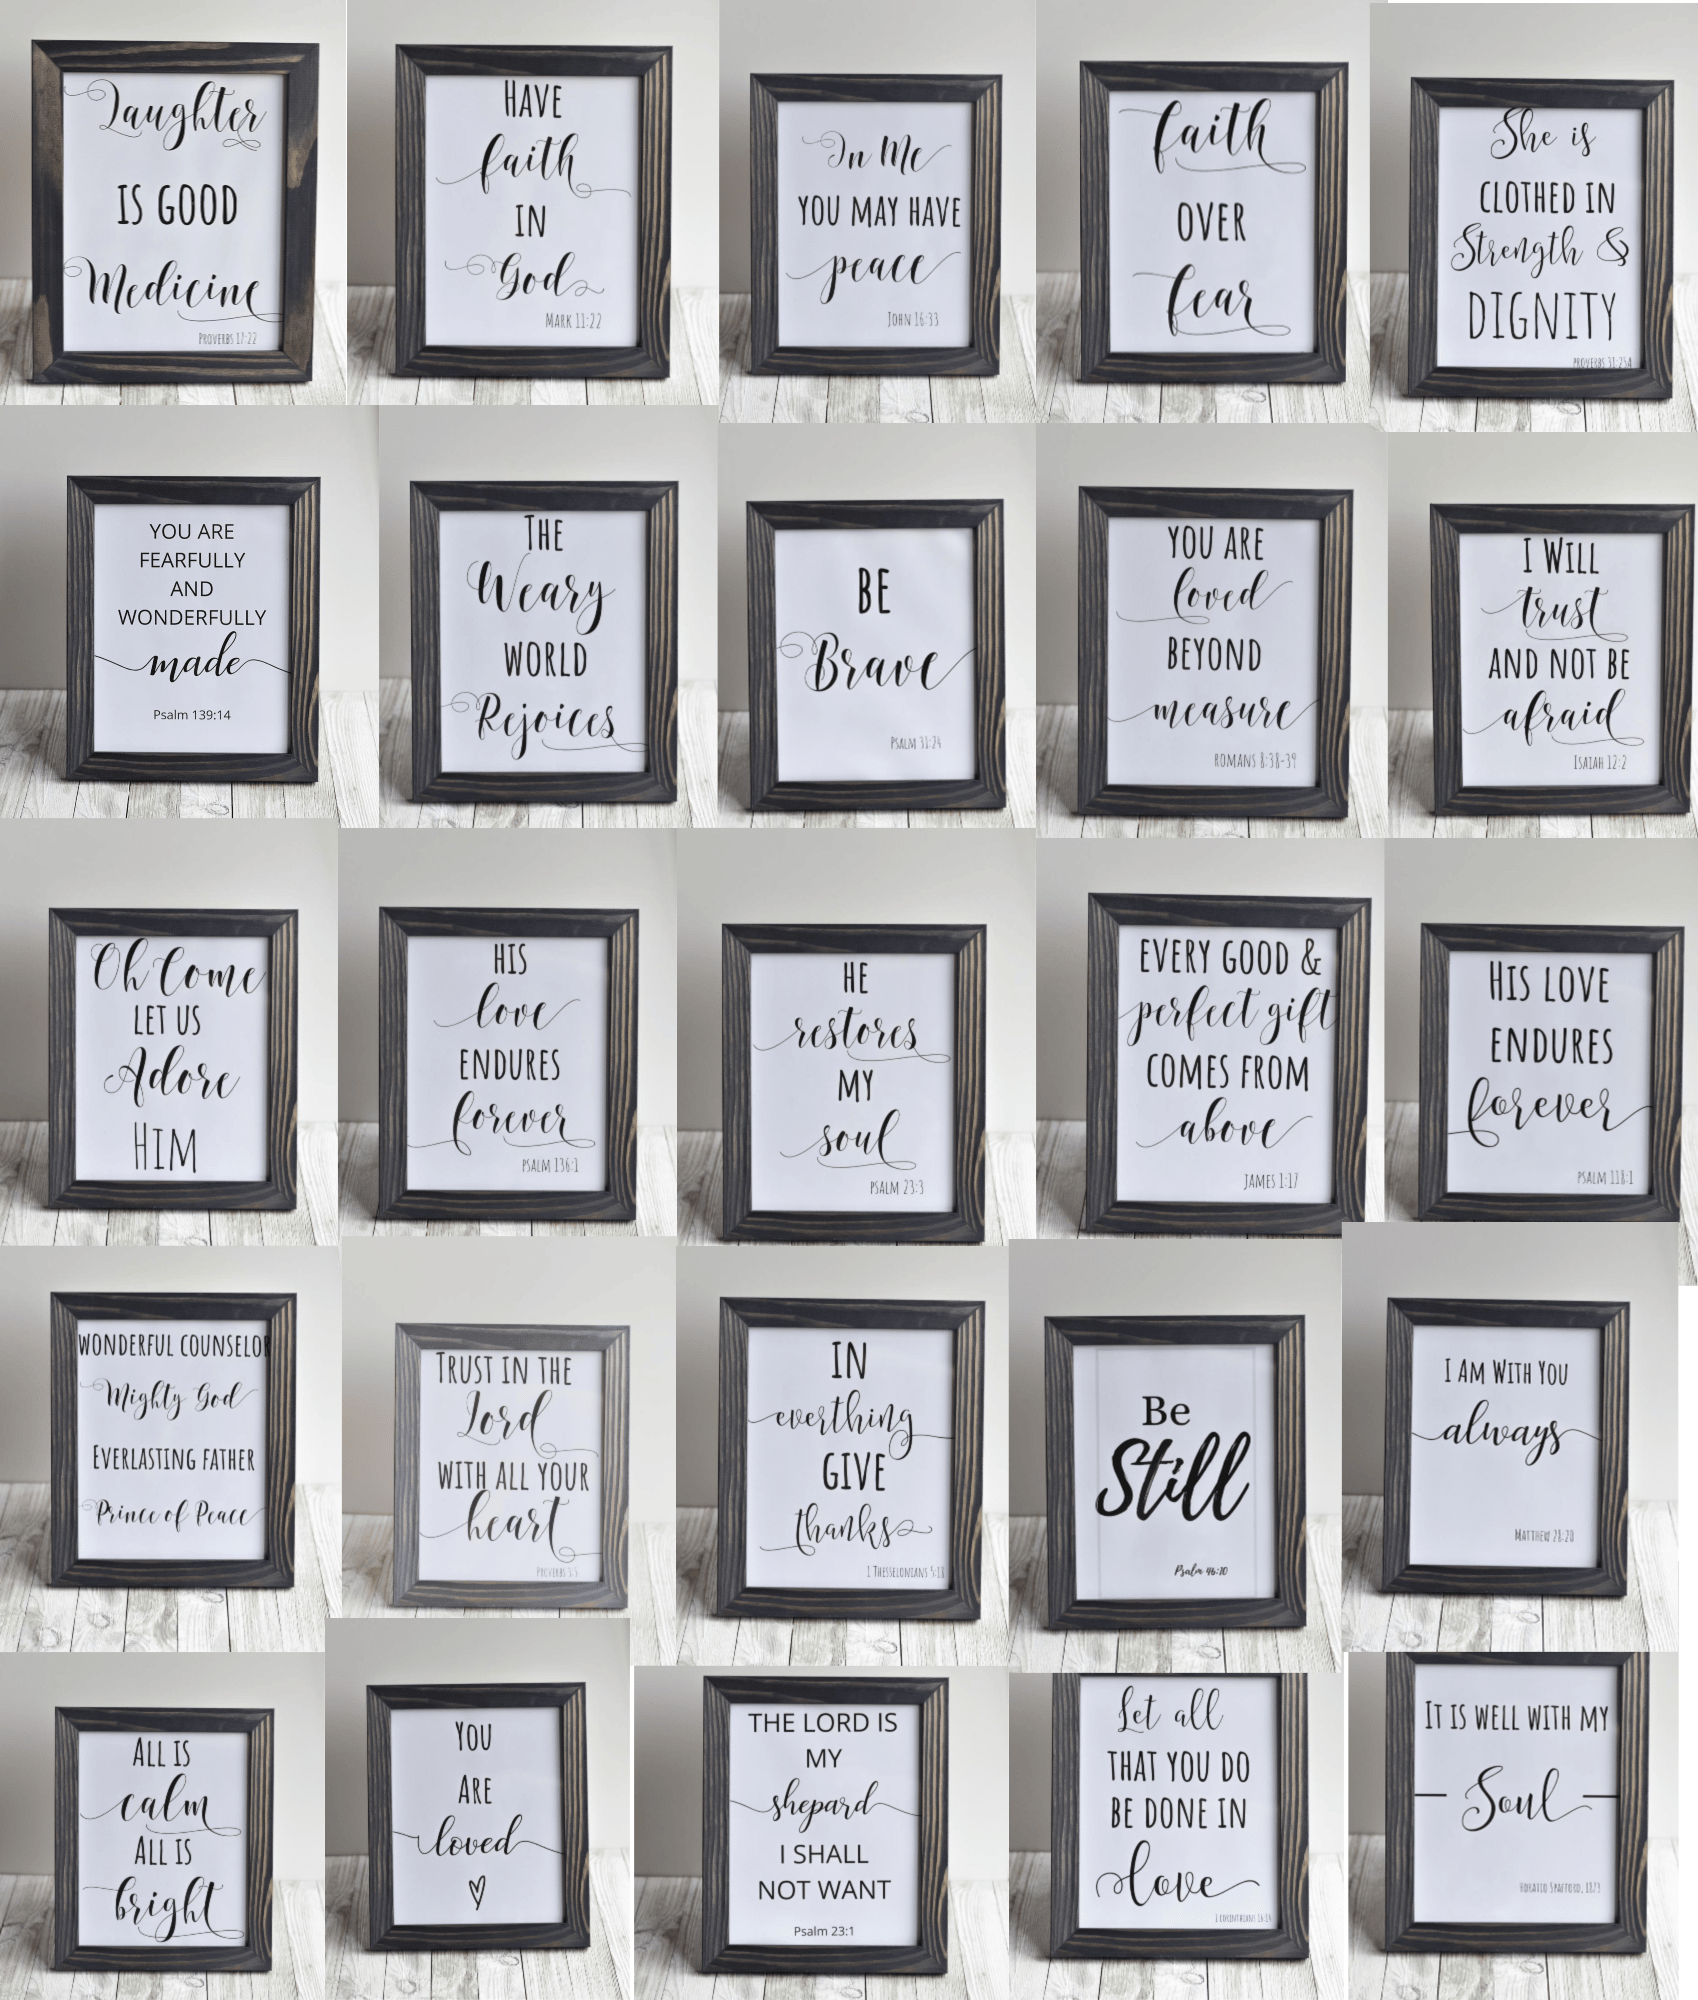 Laughter
IS GOOD
Medicine
PROVERBS 17:22
HAVE
faith
IN
God
MARK 11:22
In Me
YOU MAY HAVE
peace
JOHN 16:33
faith
OVER
fear
She is
CLOTHED IN
Strength &
DIGNITY
PROVERBS 31:25A
YOU ARE
FEARFULLY
AND
WONDERFULLY
made
Psalm 139:14
THE
Weary
WORLD
Rejoices
BE
Brave
PSALM 31:24
YOU ARE
loved
BEYOND
measure
ROMANS 8:38-39
I WILL
trust
AND NOT BE
afraid
ISAIAH 12:2
Oh Come
LET US
Adore
HIM
HIS
love
ENDURES
forever
PSALM 136:1
HE
restores
MY
soul
PSALM 23:3
EVERY GOOD &
perfect gift
COMES FROM
above
JAMES 1:17
HIS LOVE
ENDURES
forever
PSALM 118:1
WONDERFUL COUNSELOR
Mighty God
EVERLASTING FATHER
Prince of Peace
TRUST IN THE
Lord
WITH ALL YOUR
heart
PROVERBS 3:5
IN
everthing
GIVE
thanks
1 THESSELONIANS 5:18
Be
Still
Psalm 46:10
I AM WITH YOU
always
MATTHEW 28:20
ALL IS
calm
ALL IS
bright
YOU
ARE
loved
THE LORD IS
MY
shepard
I SHALL
NOT WANT
Psalm 23:1
Let all
THAT YOU DO
BE DONE IN
love
1 CORINTHIANS 16:14
IT IS WELL WITH MY
Soul
HORATIO SPAFFORD, 1873